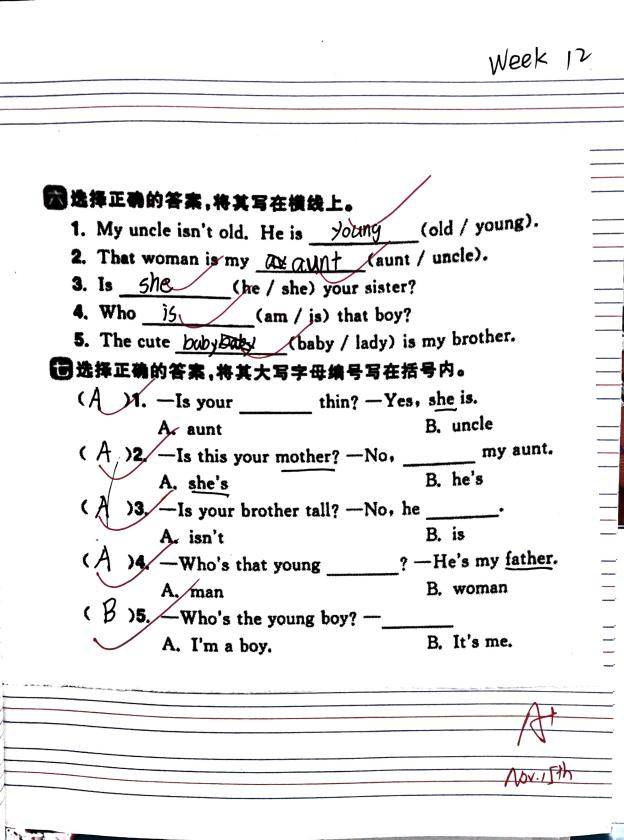 Week 12
六 选择正确的答案,将其写在横线上。
1. My uncle isn't old. He is young (old / young).
2. That woman is my aunt (aunt / uncle).
3. Is she (he / she) your sister?
4. Who is (am / is) that boy?
5. The cute baby (baby / lady) is my brother.
七 选择正确的答案,将其大写字母编号写在括号内。
( A )1. —Is your ________ thin? —Yes, she is.
A. aunt B. uncle
( A )2. —Is this your mother? —No, ________ my aunt.
A. she's B. he's
( A )3. —Is your brother tall? —No, he ________.
A. isn't B. is
( A )4. —Who's that young ________? —He's my father.
A. man B. woman
( B )5. —Who's the young boy? —________
A. I'm a boy. B. It's me.
A+
Nov. 15th